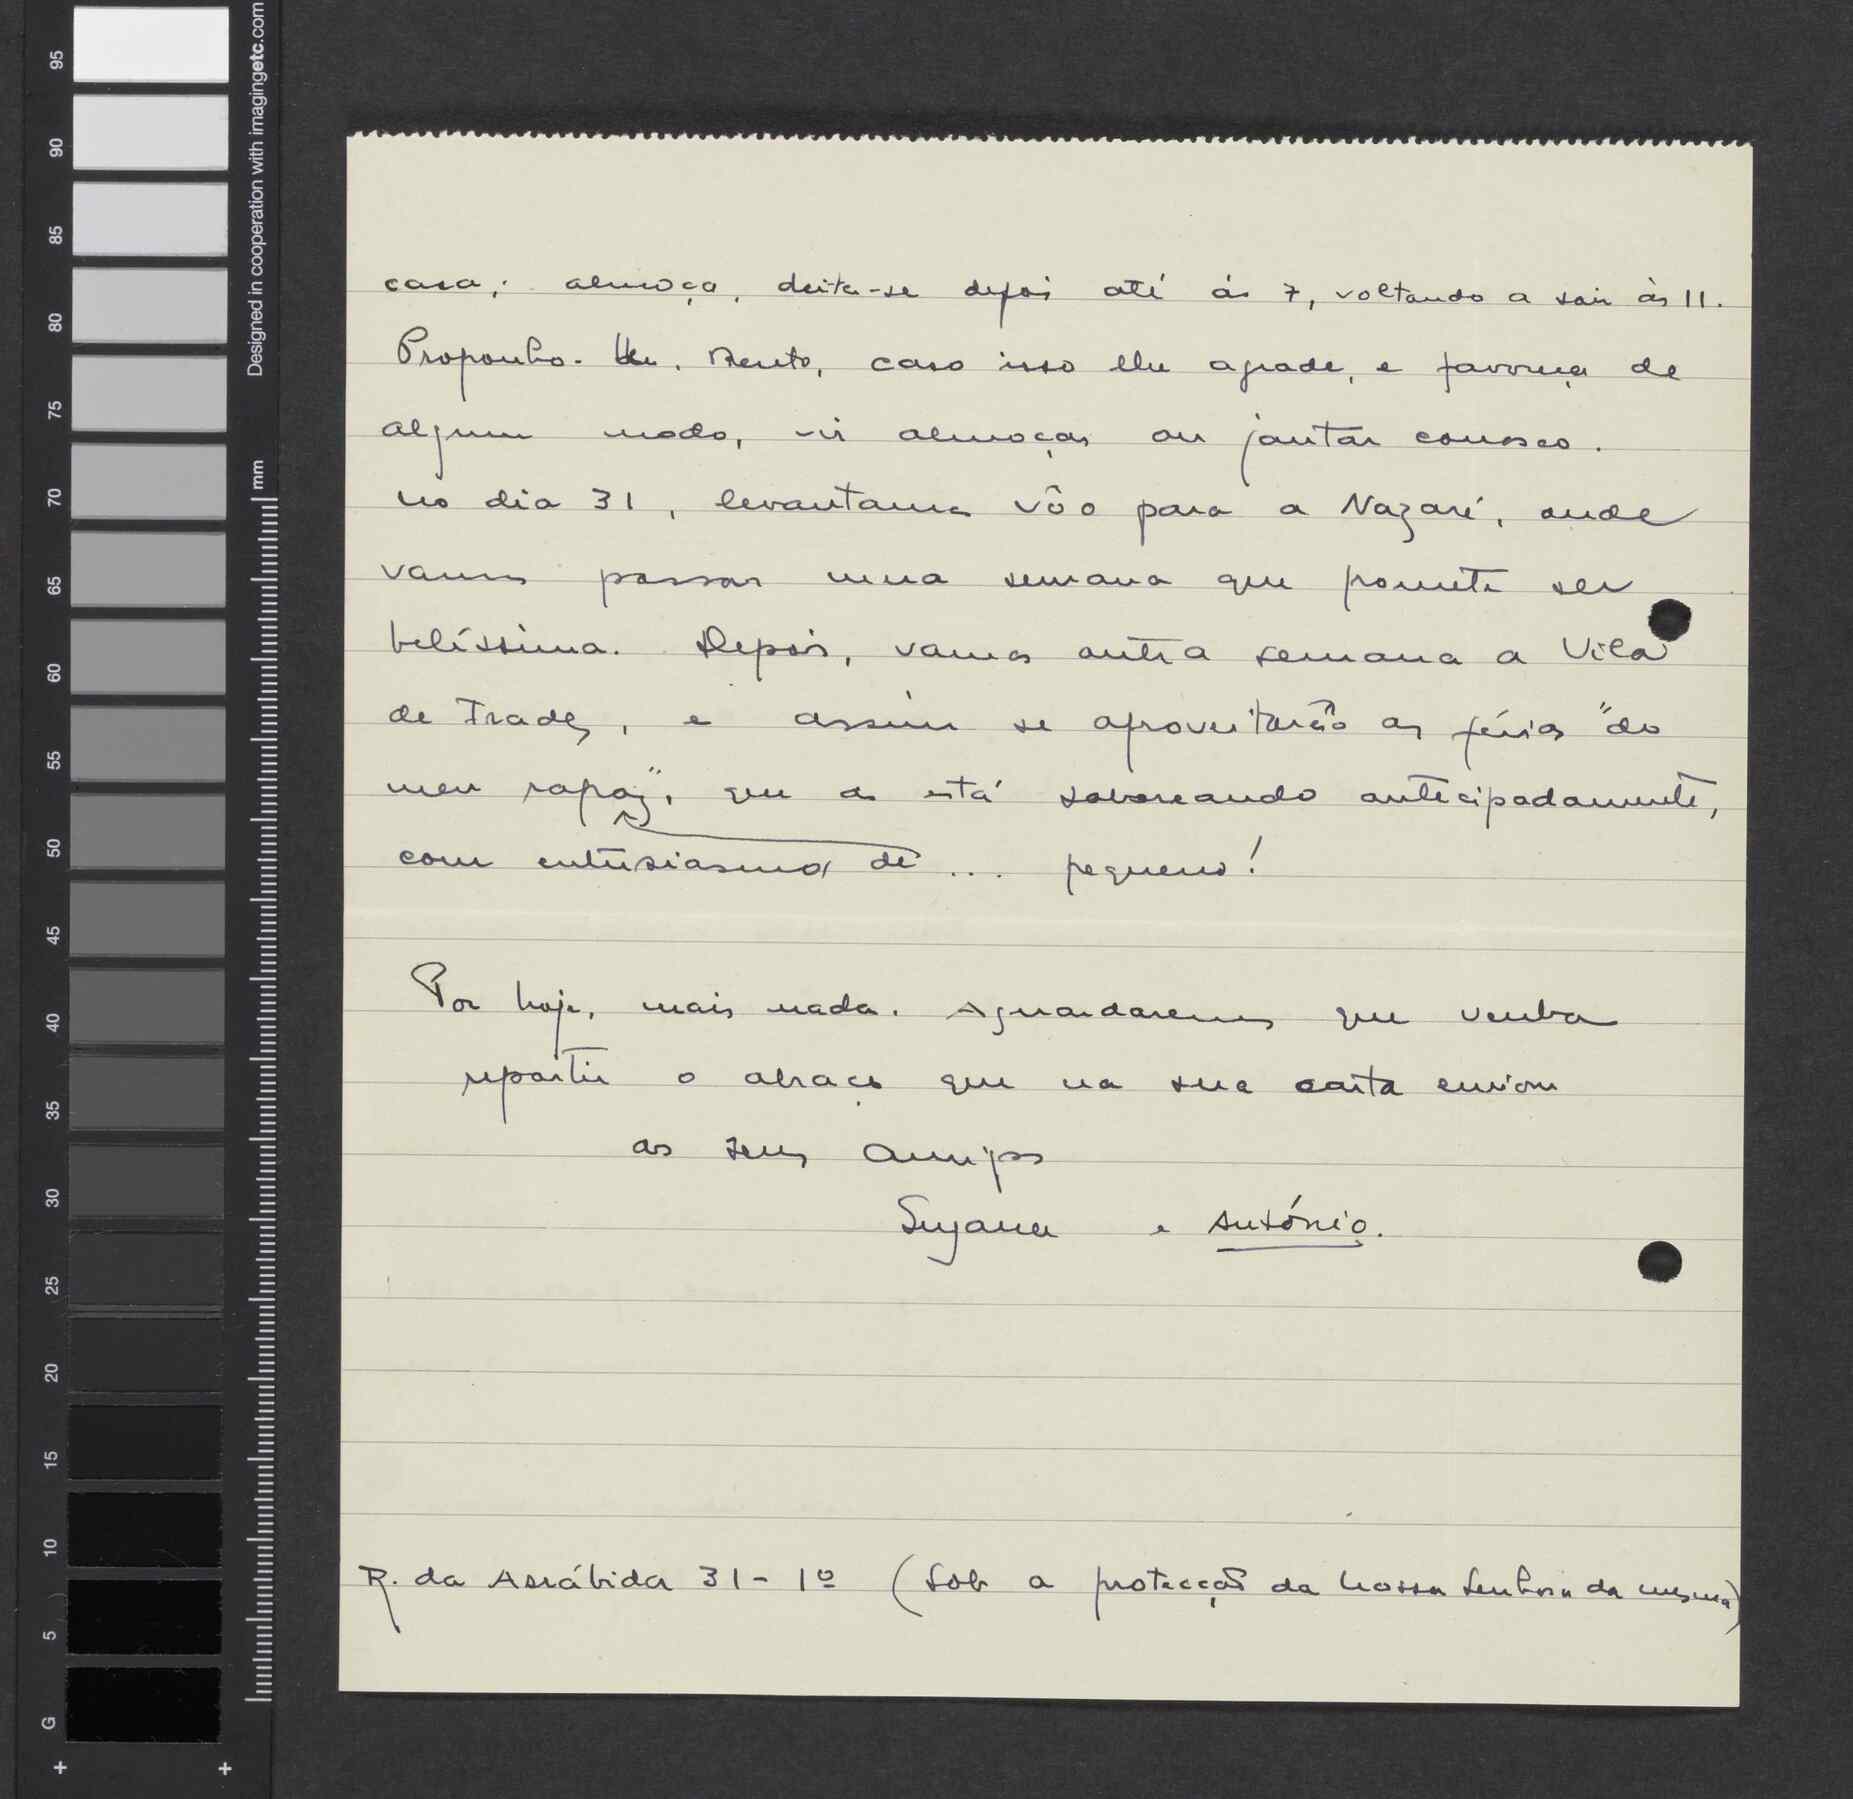 Designed in cooperation with imagingetc.com
mm
95
90
85
80
75
70
65
60
55
50
45
40
35
30
25
20
15
10
5
G
casa; almoça, deita-se depois até às 7, voltando a sair às 11.
Proponho- Bento, caso isso lhe agrade, e favoreça de
algum modo, vir almoçar ou jantar conosco.
No dia 31, levantamos vôo para a Nazaré, onde
vamos passar uma semana que promete ser
belíssima. Depois, vamos outra semana a Vila
de Frades, e assim se aproveitarão as férias "do
meu rapaz", que as está saboreando antecipadamente,
com entusiasmo de ... pequeno!
Por hoje, mais nada. Aguardaremos que venha
repartir o abraço que na sua carta enviou
aos seus amigos
Suzana e António.
R. da Arrábida 31-1º (Sob a protecção da Nossa Senhora da mesma)